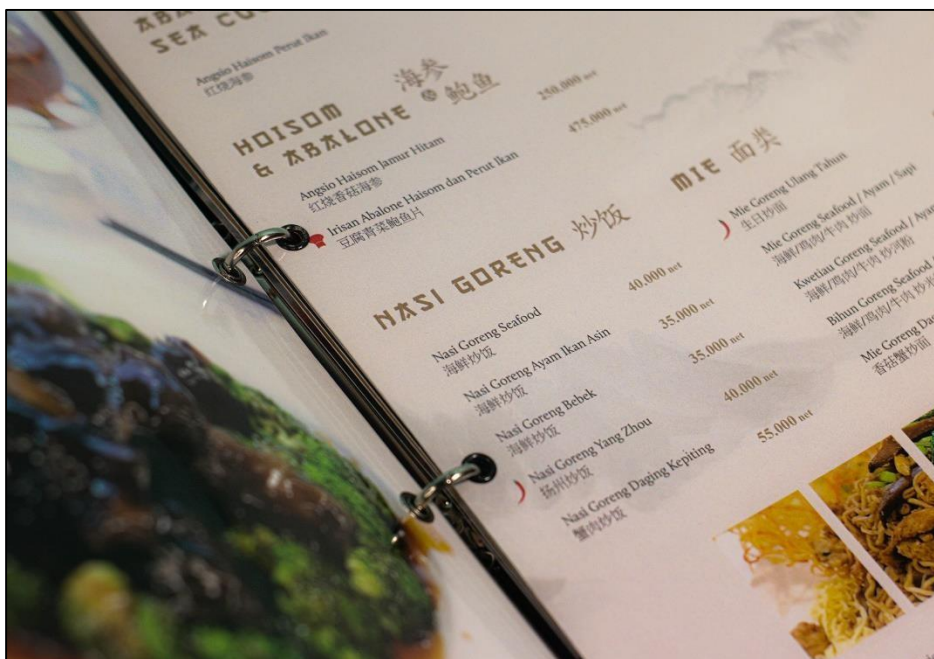 SEA
Angsio Haisom Perut Ikan
红烧海参
HOISOM
& ABALONE
海参
鲍鱼
Angsio Haisom Jamur Hitam
红烧香菇海参
250.000 net
Irisan Abalone Haisom dan Perut Ikan
豆腐青菜鲍鱼片
475.000 net
NASI GORENG 炒饭
Nasi Goreng Seafood
海鲜炒饭
40.000 net
Nasi Goreng Ayam Ikan Asin
海鲜炒饭
35.000 net
Nasi Goreng Bebek
海鲜炒饭
35.000 net
Nasi Goreng Yang Zhou
扬州炒饭
40.000 net
Nasi Goreng Daging Kepiting
蟹肉炒饭
55.000 net
MIE 面类
Mie Goreng Ulang Tahun
生日炒面
Mie Goreng Seafood / Ayam / Sapi
海鲜/鸡肉/牛肉 炒面
Kwetiau Goreng Seafood / Ayam
海鲜/鸡肉/牛肉 炒河粉
Bihun Goreng Seafood /
海鲜/鸡肉/牛肉 炒米
Mie Goreng Da
香菇蟹炒面